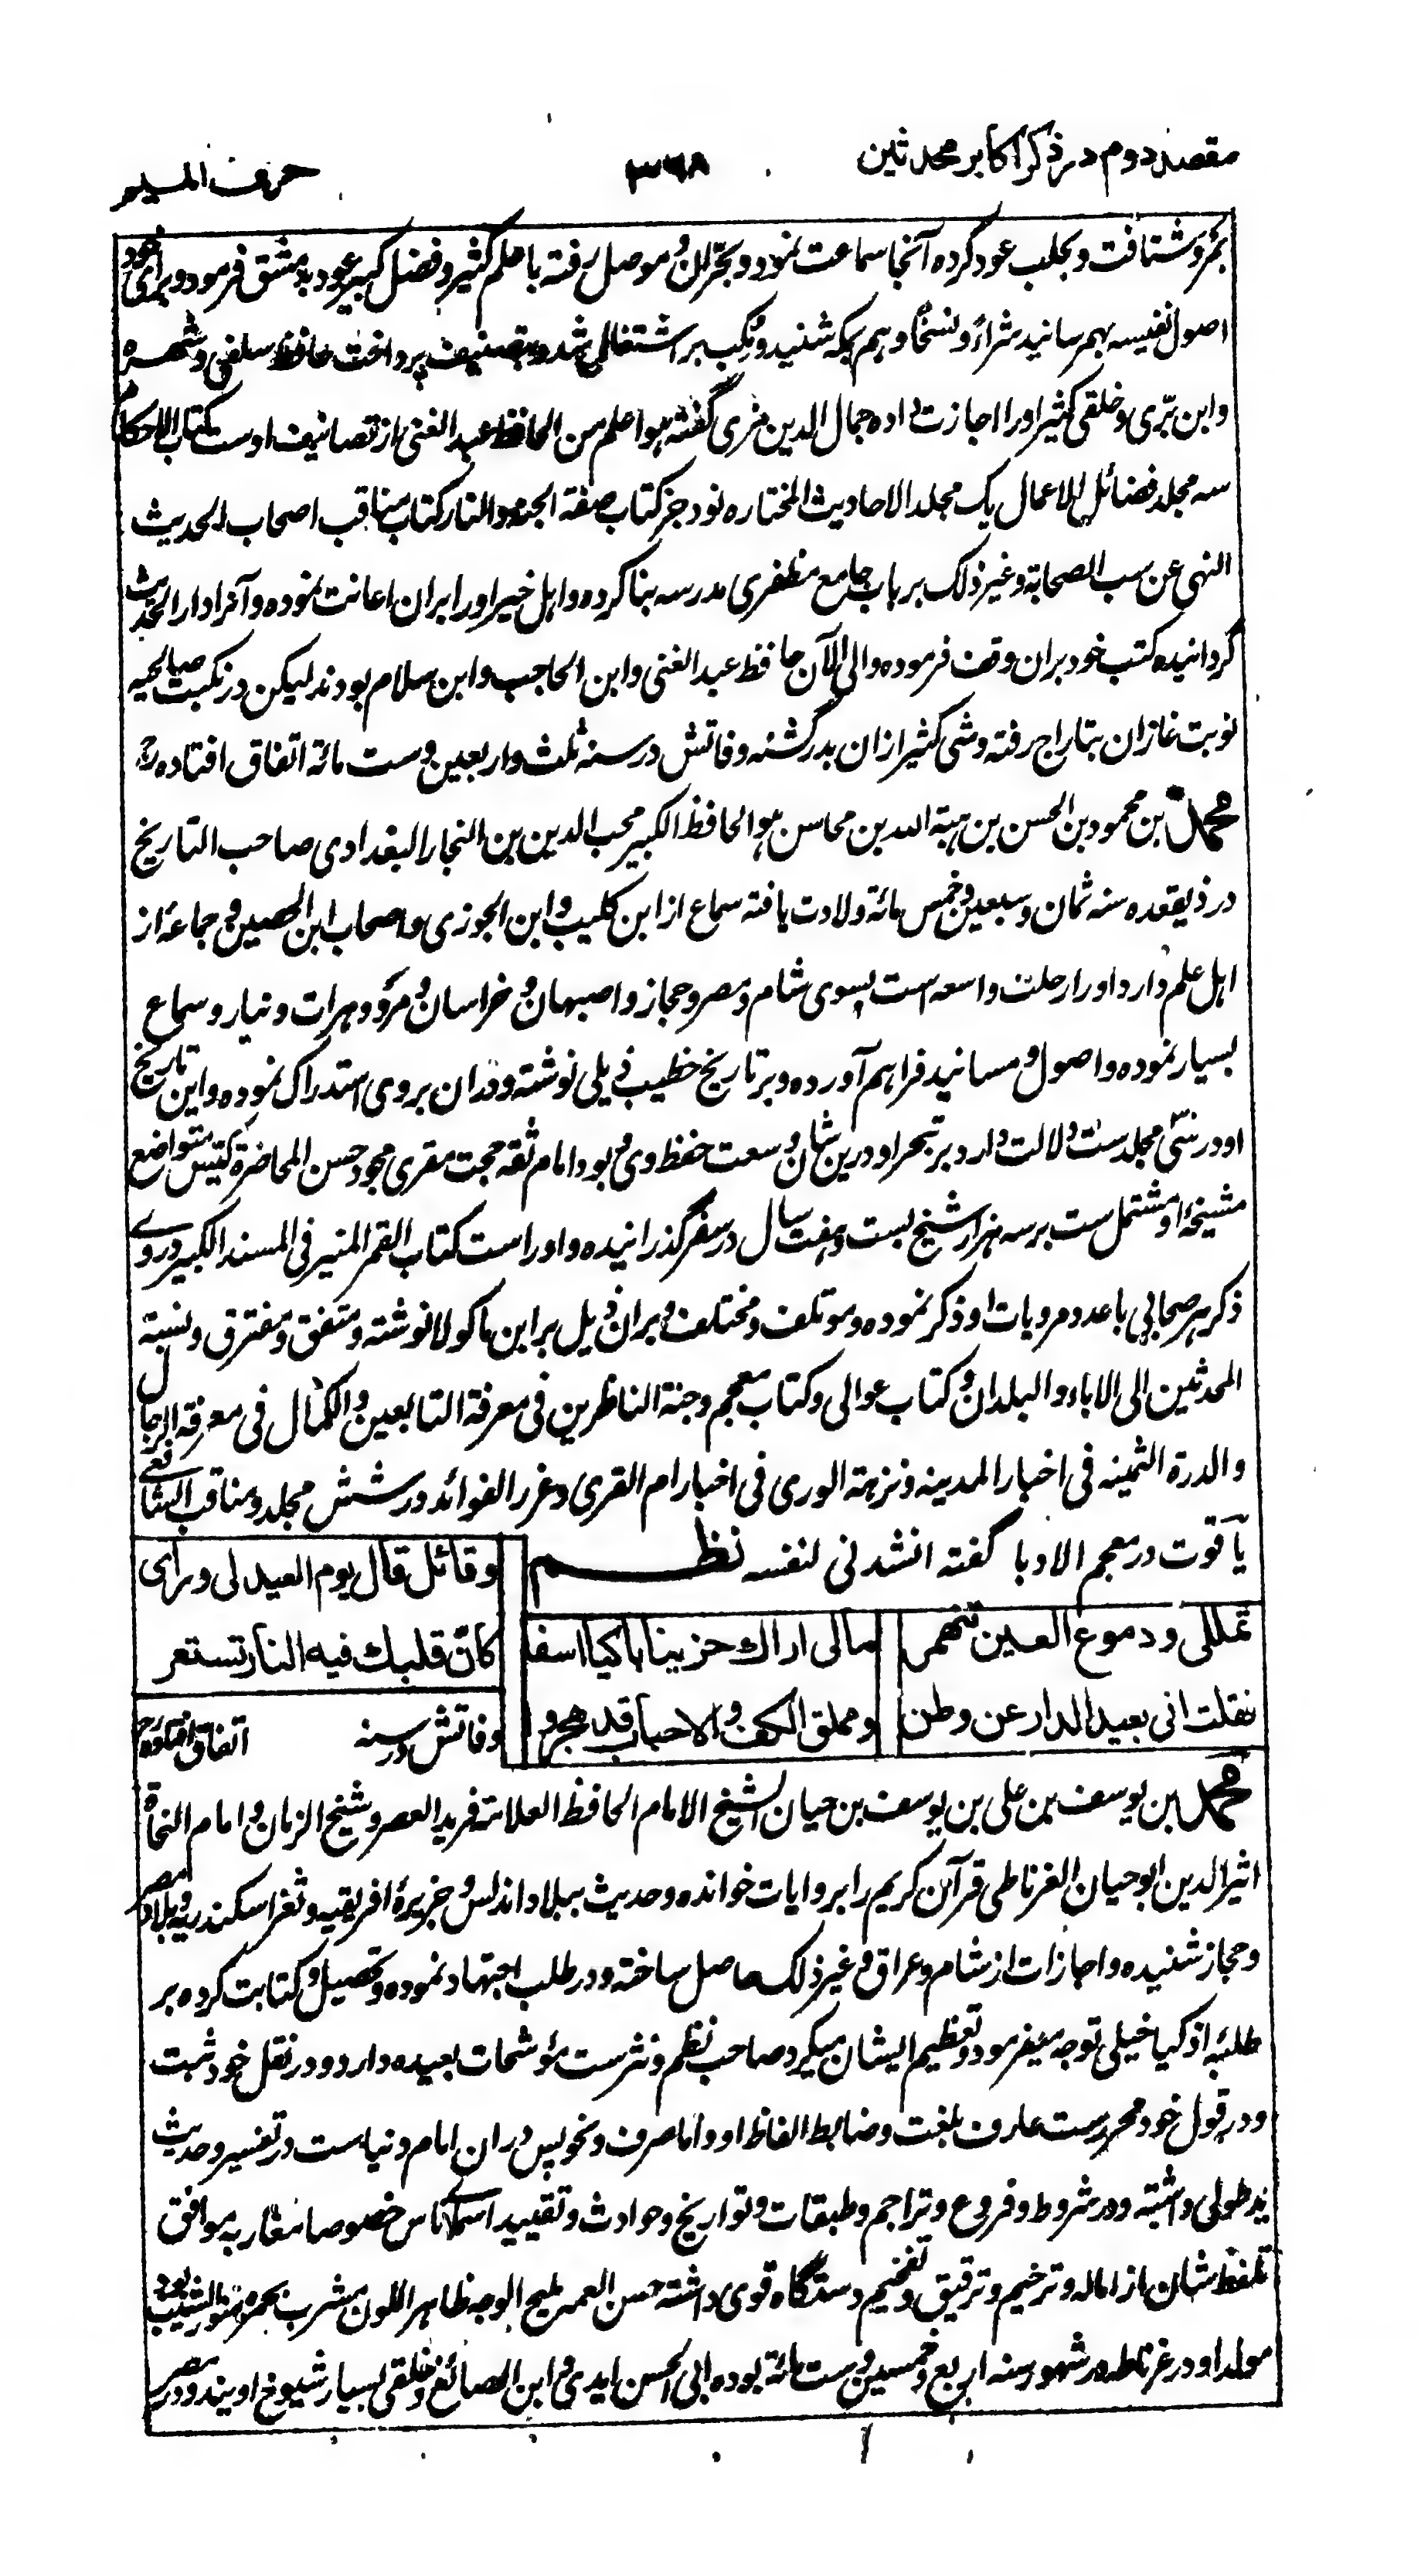 مقصد دوم در ذکر اکابر محدثین ۳۶۸ حرف المیم
بمرو شتافت و بحلب عود کرده آنجا سماعت نمود و بحران و موصل رفته با علم کثیر و فضل کبیر عود بدمشق فرمود و برای خود
اصول نفیسه بهم رسانید شراءً و نسخًا و هم بمکه شنید و مکب بر اشتغال شد و بتصنیف پرداخت حافظ سلفی و شهده
و ابن برّی و خلقی کثیر او را اجازت داده جمال الدین مزی گفته هو اعلم من الحافظ عبد الغنی از تصانیف اوست کتاب الاحکام
سه مجلد فضائل الاعمال یک مجلد الاحادیث المختاره نود جز کتاب صفة الجنة والنار کتاب مناقب اصحاب الحدیث
النهی عن سب الصحابة و غیر ذلک بر باب جامع مظفری مدرسه بنا کرده و اهل خیر او را بران اعانت نموده و آنرا دار الحدیث
گردانیده کتب خود بران وقف فرموده والی الآن حافظ عبد الغنی و ابن الحاجب و ابن سلام بودند لیکن در نکبت صالحیه
نوبت غازان بتاراج رفته و شی کثیر ازان بدر گشته وفاتش در سنه ثلث و اربعین و ست مائة اتفاق افتاده رح
محمد بن محمود بن الحسن بن هبة الله بن محاسن هو الحافظ الکبیر محب الدین بن النجار البغدادی صاحب التاریخ
در ذیقعده سنه ثمان و سبعین و خمس مائة ولادت یافته سماع از ابن کلیب و ابن الجوزی و اصحاب ابن الحصین و جماعهٔ از
اهل علم دارد او را رحلت واسعه است بسوی شام و مصر و حجاز و اصبهان و خراسان و مرو و هرات و نیار و سماع
بسیار نموده و اصول و مسانید فراهم آورده و بر تاریخ خطیب ذیلی نوشته و دران بروی استدراک نموده و این تاریخ
او در سی مجلد ست دلالت دارد بر تبحر او درین شان و سعت حفظ وی و بود امام ثقه حجت مقری مجود حسن المحاضرة کیس متواضع
مشیخهٔ او مشتمل ست بر سه هزار شیخ بست و هفت سال در سفر گذرانیده و او راست کتاب القمر المنیر فی المسند الکبیر دروے
ذکر هر صحابی با عدد مرویات او ذکر نموده و موتلف و مختلف و بران ذیل بر ابن ماکولا نوشته و متفق و مفترق و نسبة
المحدثین الی الاباء و البلدان و کتاب عوالی و کتاب معجم و جنة الناظرین فی معرفة التابعین و الکمال فی معرفة الرجال
و الدرة الثمینه فی اخبار المدینه و نزهة الوری فی اخبار ام القری و غرر الفوائد در شش مجلد و مناقب الشافعی
یاقوت در معجم الادبا گفته انشدنی لنفسه نظـــم وقائل قال یوم العید لی ورأی
تململی ودموع العین تنهمر مالی اراك حزینا باکیا اسفا کأن قلبك فیه النار تستعر
فقلت انی بعید الدار عن وطن ومملق الکف والاحباب قد هجروا وفاتش در سنه اتفاق افتاده رح
محمد بن یوسف بن علی بن یوسف بن حیان الشیخ الامام الحافظ العلامة فرید العصر و شیخ الزمان و امام النحاة
اثیر الدین ابو حیان الغرناطی قرآن کریم را بروایات خوانده و حدیث ببلاد اندلس و جزیرهٔ افریقیه و ثغر اسکندریه و بلاد مصر
و حجاز شنیده و اجازات از شام و عراق و غیر ذلک حاصل ساخته و در طلب اجتهاد نموده و تحصیل و کتابت کرده بر
طلبهٔ اذکیا خیلی توجه میفرمود و تعظیم ایشان میکرد صاحب نظم و نثر ست موشحات بعیده دارد و در نقل خود ثبت
و در قول خود محرر ست عارف بلغت و ضابط الفاظ او و اما صرف و نحو پس دران امام دنیاست در تفسیر و حدیث
ید طولی داشته و در شروط و فروع و تراجم و طبقات و تواریخ و حوادث و تقیید اسمای ناس خصوصا مغاربه موافق
تلفظ شان از اماله و ترخیم و ترقیق و تفخیم دستگاه قوی داشته حسن العمه ملیح الوجه ظاهر اللون مشرب بحمره منور الشیب بود
مولد او در غرناطه در شهور سنه اربع و خمسین و ست مائة بوده ابی الحسن ابدی و ابن الصائغ و خلقی بسیار شیوخ اویند و در مصر